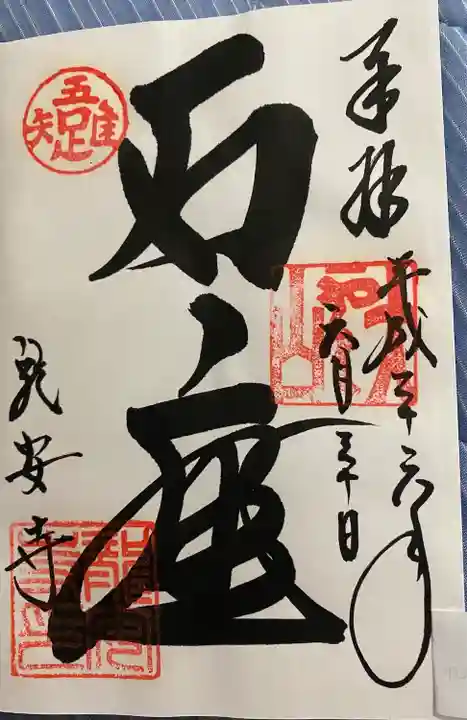 奉拝
平成二十六年
六月三十日
石庭
龍安寺
五隹疋矢